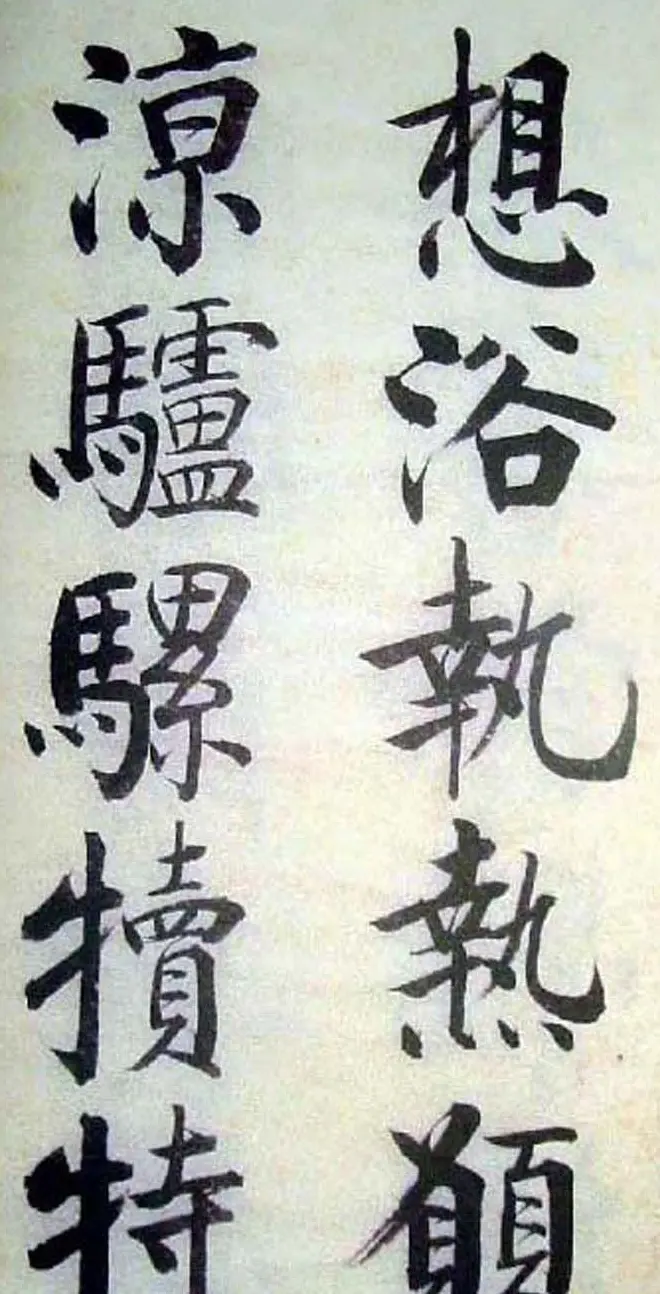 想浴執熱願
涼驢騾犢特